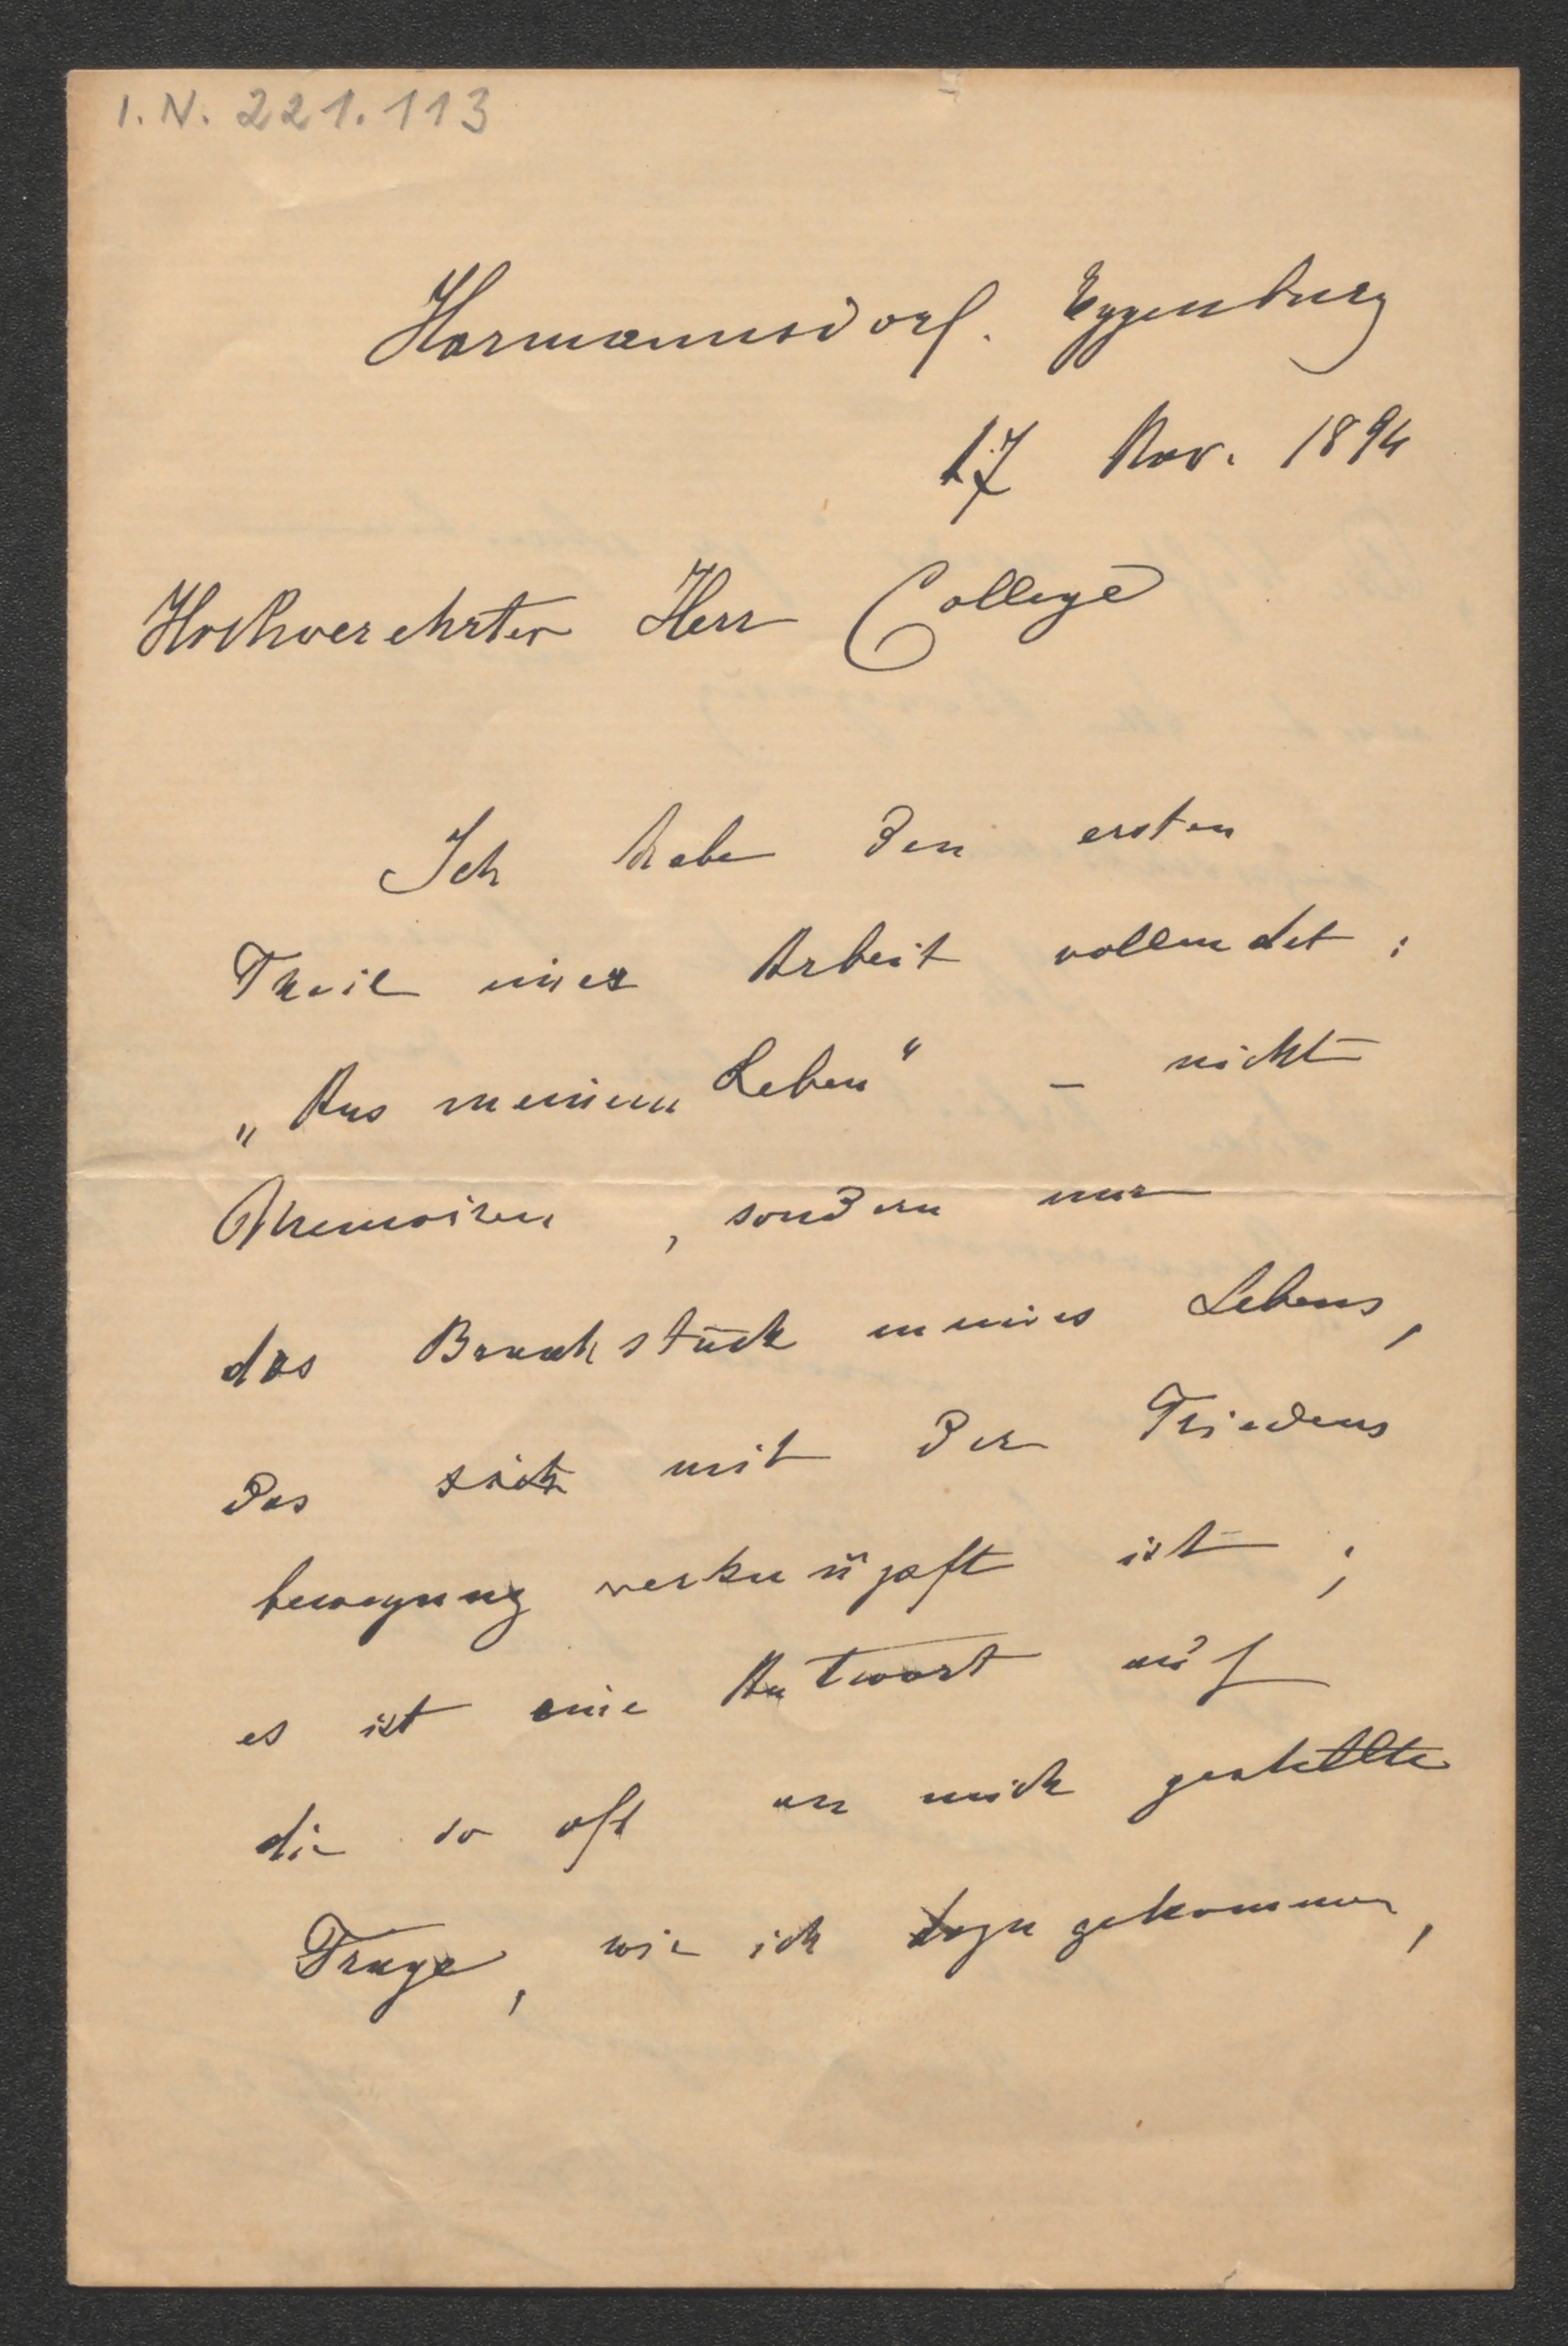 I. N. 221.113
Harmannsdorf. Eggenburg
17 Nov. 1894
Hochverehrter Herr College
Ich habe den ersten
Theil einer Arbeit vollendet:
„Aus meinem Leben“ – nicht
Memoiren, sondern nur
das Bruchstück meines Lebens,
das mit der Friedens
bewegung verknüpft ist;
es ist eine Antwort auf
die so oft an mich gestellte
Frage, wie ich dazu gekommen,